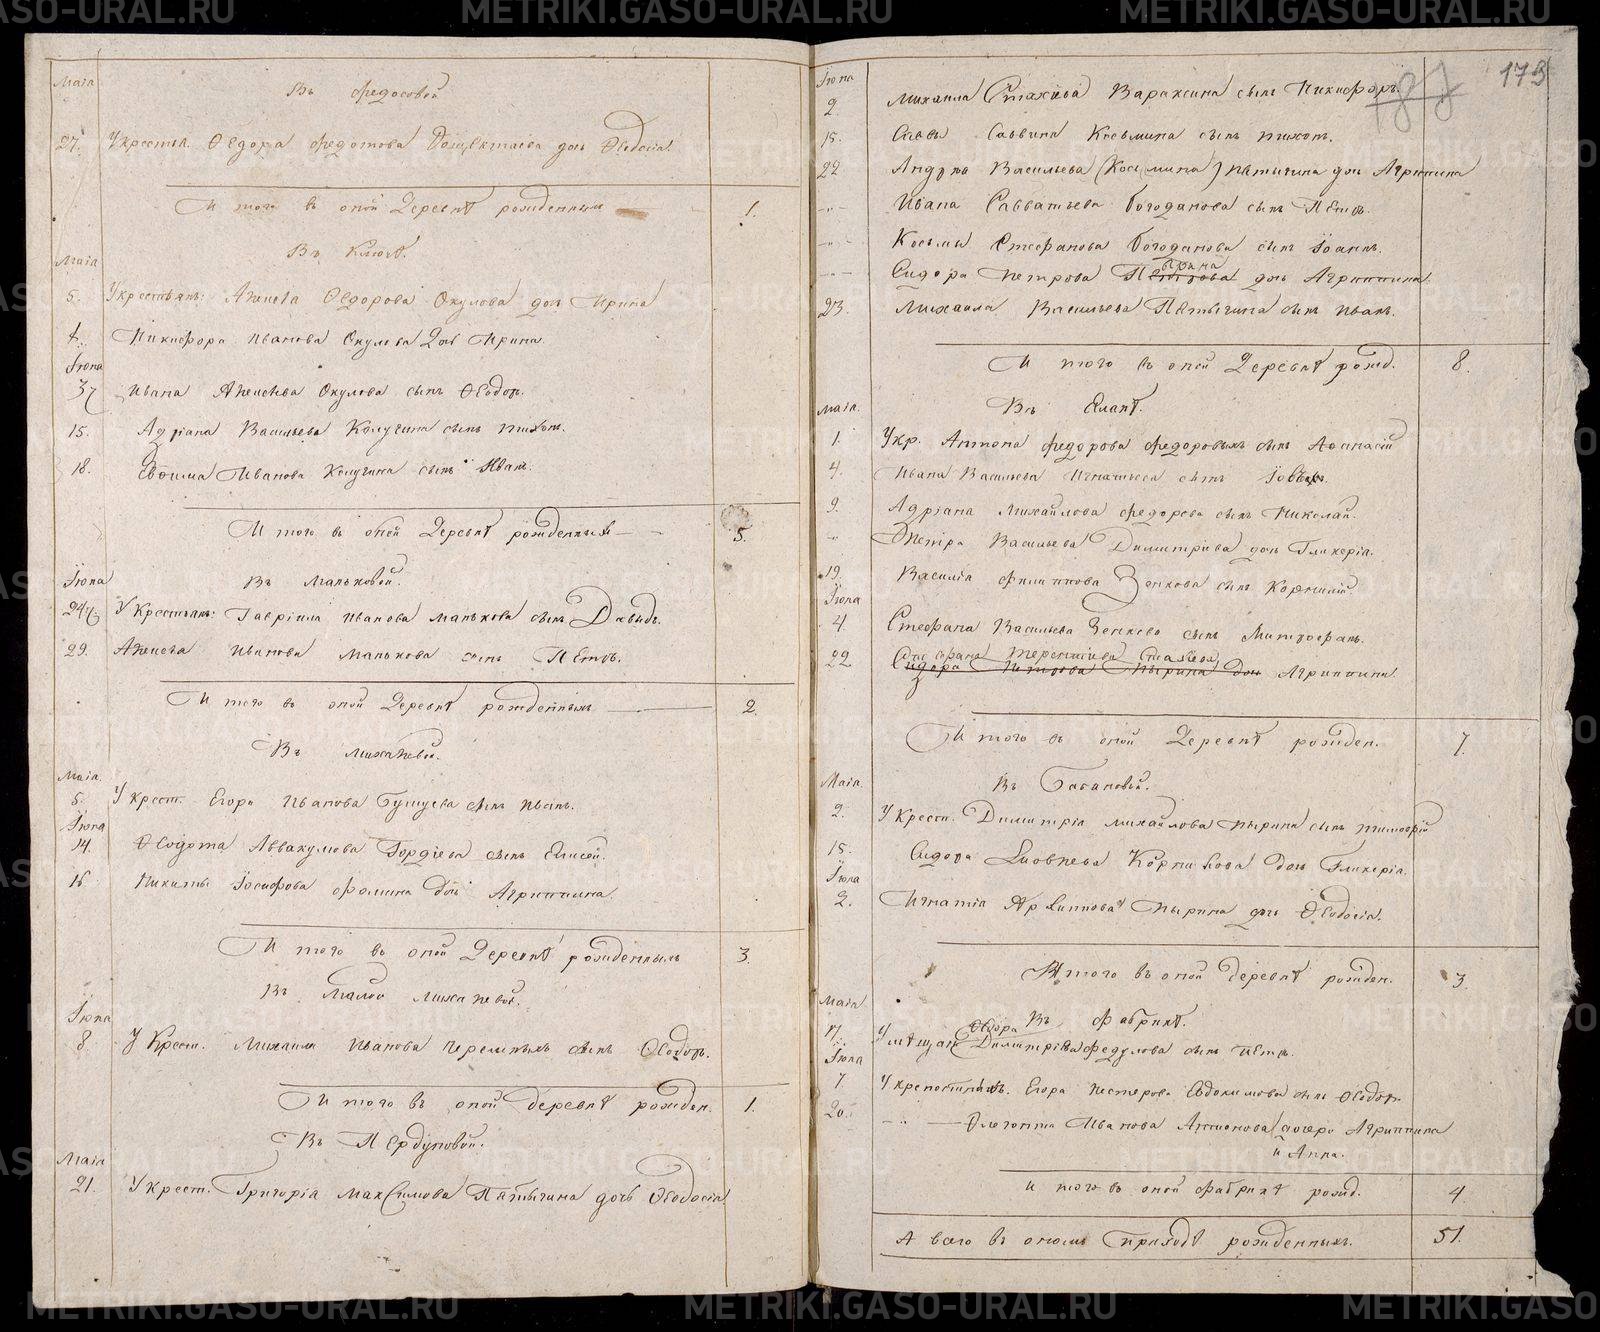 Маіа
Въ Федосовой
27. У крестья. Ѳедора Федотова дочь Ѳеодосіа.
И того въ оной Деревнѣ рожденныхъ 1.
Въ Ключѣ.
Маіа
5. У крестьян: Алексѣа Ѳедорова Окулова дочь Ирина
Никифора Иванова Окулова дочь Ирина.
Іюна
3 Ивана Алексѣева Окулова сынъ Ѳеодоръ.
15. Адріана Васильева Калугина сынъ Тихонъ.
18. Евѳима Иванова Калугина сынъ Иванъ.
И того въ оной Деревнѣ рожденныхъ 5.
Въ Маньковой.
Іюна
24 У Крестьян: Гавріила Иванова Манькова сынъ Давыдъ.
29. Алексѣа Иванова Манькова сынъ Петръ.
И того въ оной Деревнѣ рожденныхъ 2.
Въ Михалевой.
Маіа
5. У крест. Егора Иванова Гущуева сынъ Иванъ.
Іюна
14. Ѳеодота Аввакумова Гордіева сынъ Елисей.
16. Никиты Іосифова Фомина дочь Агриппина.
И того въ оной Деревнѣ рожденныхъ 3.
Въ Малой Михалевой.
Іюна
8 У Крест. Михаила Иванова Черемныхъ сынъ Ѳеодоръ.
И того въ оной деревнѣ рожден. 1.
Въ Пердуновой.
Маіа
21. У крест. Григоріа Максимова Пятыгина дочь Ѳеодосіа.
173
187
Іюна
2. Михаила Стахіева Вараксина сынъ Никифоръ
15. Саввы Саввина Косьмина сынъ Тихон.
22 Андрѣа Васильева (Косьмина) Пятыгина дочь Агриппина
-"- Ивана Савватьева Богоданова сынъ Петръ.
-"- Косьмы Стефанова Богоданова сынъ Іоаннъ.
-"- Сидора Петрова Пырина дочь Агриппина.
23. Михаила Васильева Пятыгина сынъ Иванъ.
И того въ оной Деревнѣ рожд. 8.
Въ Еланѣ.
Маіа.
1. У кр. Антона Федорова Федоровыхъ сынъ Аѳанасій
4. Ивана Васильева Игнатьева сынъ
9. Адріана Михайлова Федорова сынъ Николай.
-"- Петра Васильева Димитріева дочь Гликеріа.
19. Василіа Филиппова Зенкова сынъ Корнилій.
Іюна
4. Стефана Васильева Зенкова сынъ Митрофанъ.
22. Стефана Терентіева Стахіева
Сидора Петрова Пырина дочь Агриппина.
И того въ оной Деревнѣ рожден. 7.
Въ Гагановой.
Маіа
2. У Крест. Димитріа Михайлова Пырина сынъ Тимоѳей
15. Сидора Іаковлева Корниhова дочь Гликеріа.
Іюна
2. Игнатіа Архиппова Пырина дочь Ѳеодосіа.
И того въ оной деревнѣ рожден. 3.
Въ Фабрикѣ.
Маіа
17. У мѣщан Ѳедора Димитріева Федулова сынъ Петръ.
Іюна
7. У крепостныхъ. Егора Нестерова Евдокимова сынъ Ѳеодоръ
20. -"- Иванова Антионова дочери Агриппина
и Анна.
И того въ оной Фабрикѣ рожд. 4
А всего въ ономъ Приходѣ рожденныхъ. 51.
METRIKI.GASO-URAL.RU